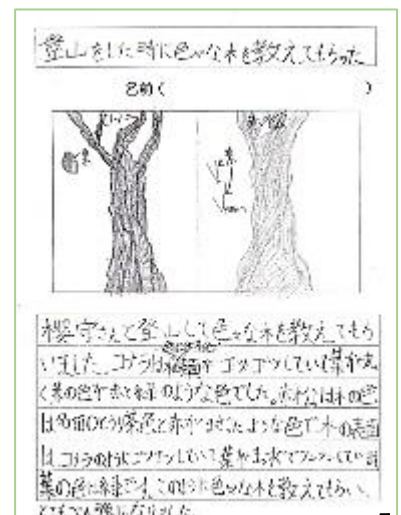 登山をした時に色々な木を教えてもらった
名前( )
葉
桜守さんと登山して色々な木を教えてもら
いました。コナラは表面がゴツゴツしていて葉が丸
く葉の色が赤と緑のような色でした。赤松は木の色
は名前のとうり茶色と赤がまざったような色で木の表面
はコナラのようにゴツゴツしていて葉が
葉の色は緑です。このように色々な木を教えてもらい、
とても勉強になりました。